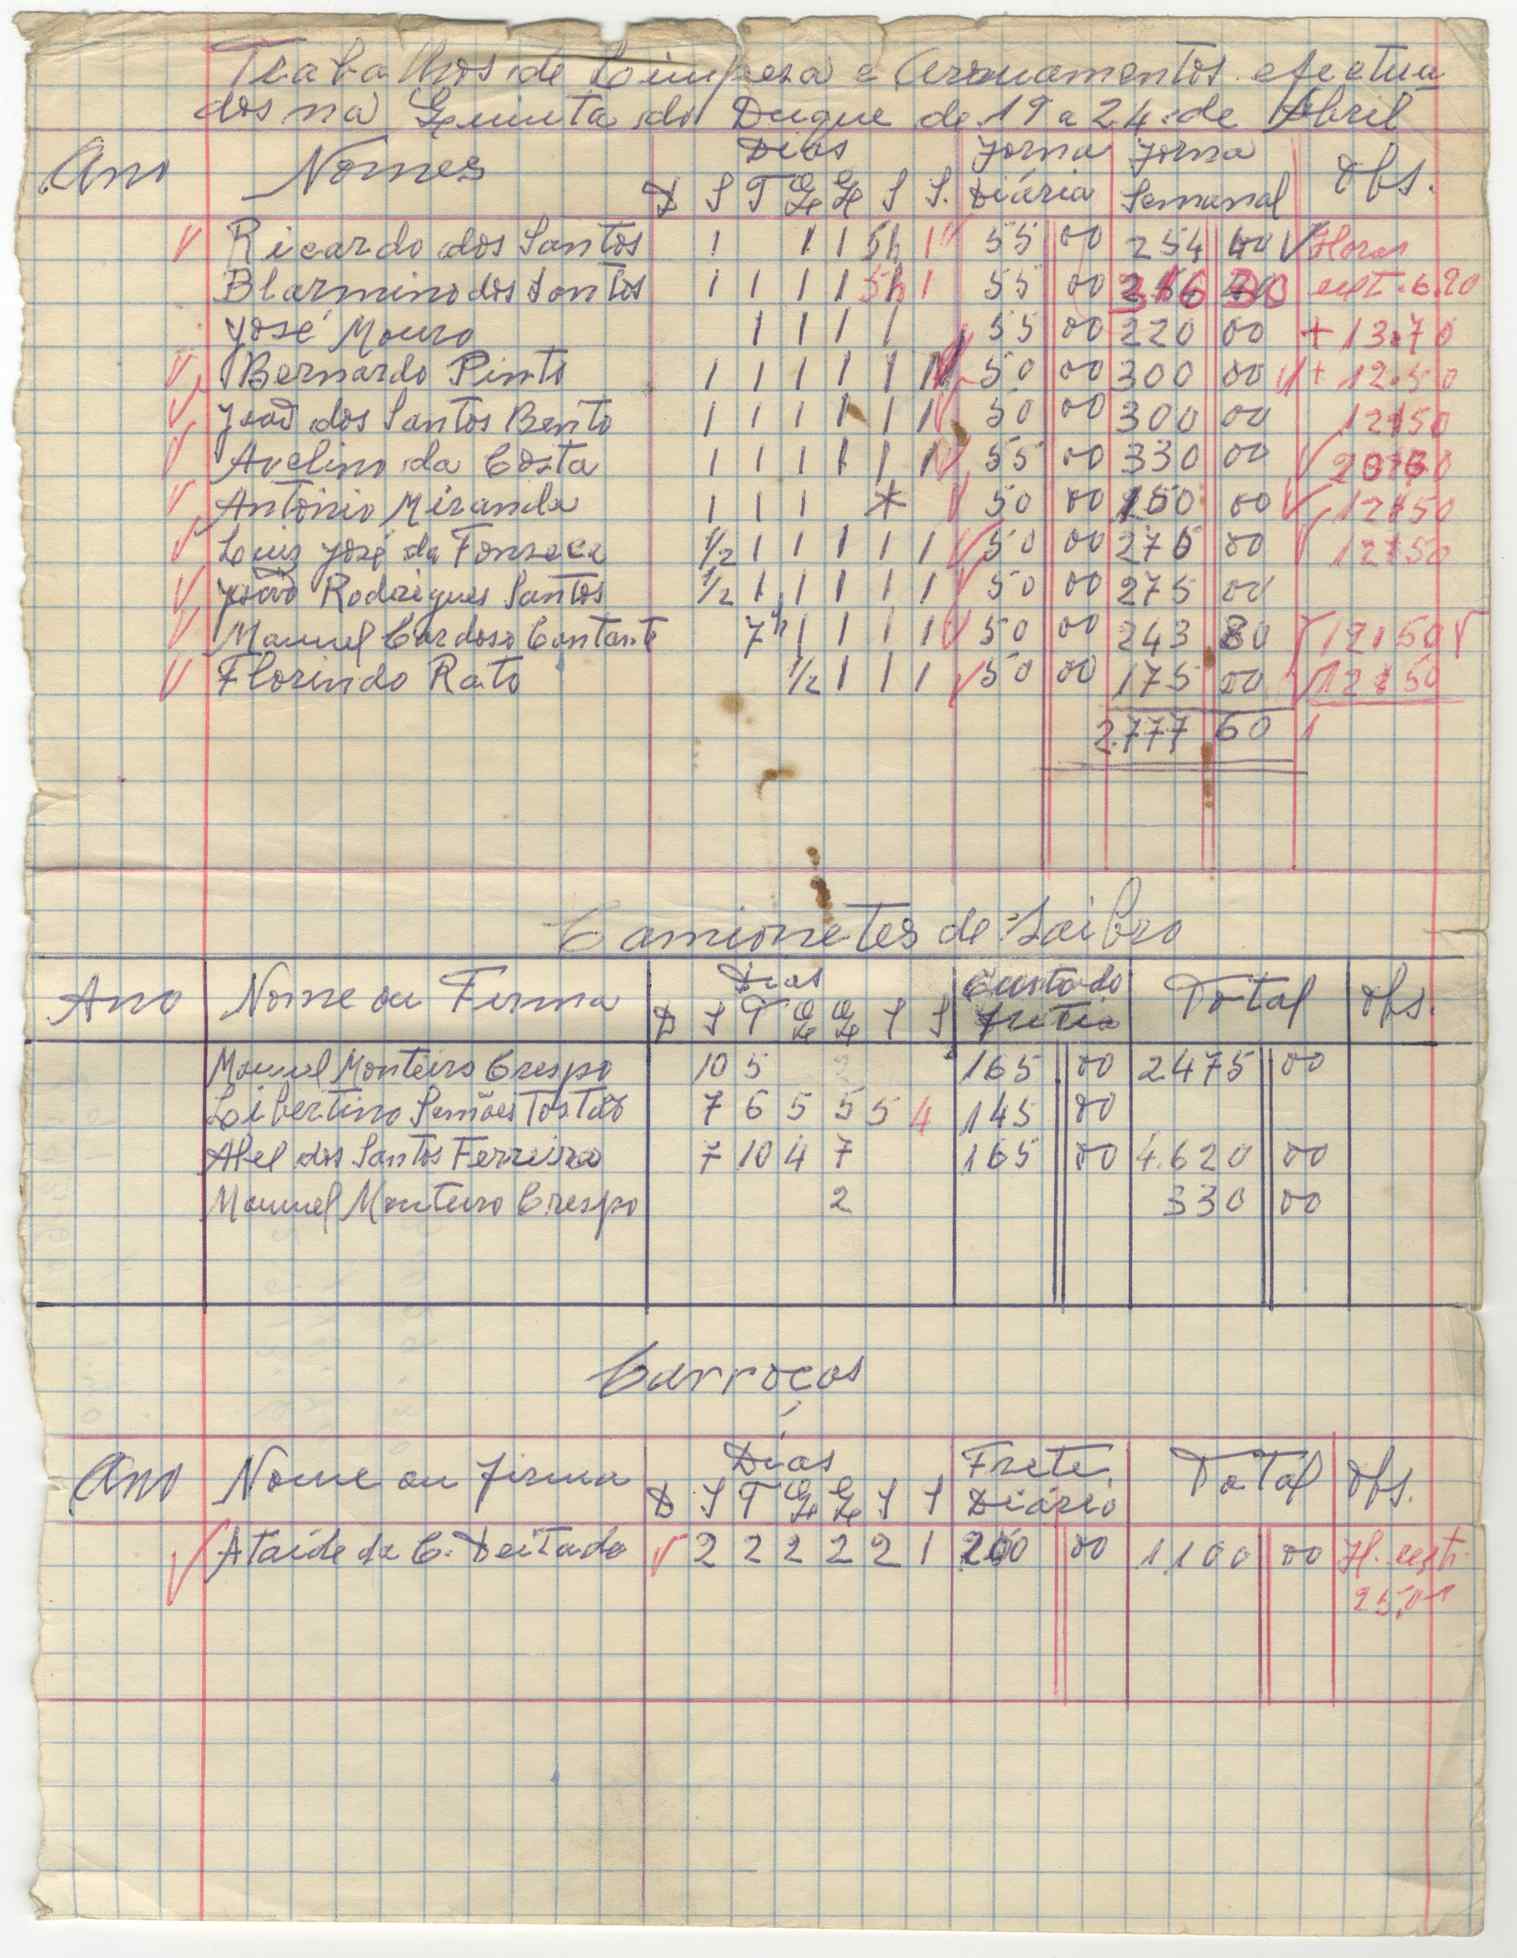 Trabalhos de Limpesa e Arruamentos efectua
dos na Quinta do Duque de 19 a 24 de Abril
Ano Nomes Dias Jorna Jorna Obs.
D S T Q Q S S. Diária Semanal
Ricardo dos Santos 1 1 1 5h 1 55 00 254 40 Horas
Blarmino dos Santos 1 1 1 1 5h 1 55 00 ext. 6.20
José Mouro 1 1 1 1 55 00 220 00 + 13.70
Bernardo Pinto 1 1 1 1 1 1 50 00 300 00 + 12.50
João dos Santos Bento 1 1 1 1 1 1 50 00 300 00 12$50
Avelino da Costa 1 1 1 1 1 1 55 00 330 00
Antonio Miranda 1 1 1 * 50 00 150 00 12$50
Luis José da Fonseca 1/2 1 1 1 1 1 50 00 275 00 12$50
João Rodrigues Santos 1/2 1 1 1 1 1 50 00 275 00
Manuel Cardoso Contante 7h 1 1 1 1 50 00 243 80 12$50
Florindo Rato 1/2 1 1 1 50 00 175 00 12$50
2.777 60
Camionetes de Saibro
Ano Nome ou Firma Dias Custo do Total Obs.
D S T Q Q S S frete
Manuel Monteiro Crespo 10 5 165 00 2475 00
Libertino Simões Tostão 7 6 5 5 5 4 145 00
Abel dos Santos Ferreira 7 10 4 7 165 00 4.620 00
Manuel Monteiro Crespo 2 330 00
Carroças
Ano Nome ou firma Dias Frete Total Obs.
D S T Q Q S S Diário
Ataíde da C. Deitado 2 2 2 2 2 1 00 1.100 00 H. ext.
25,00